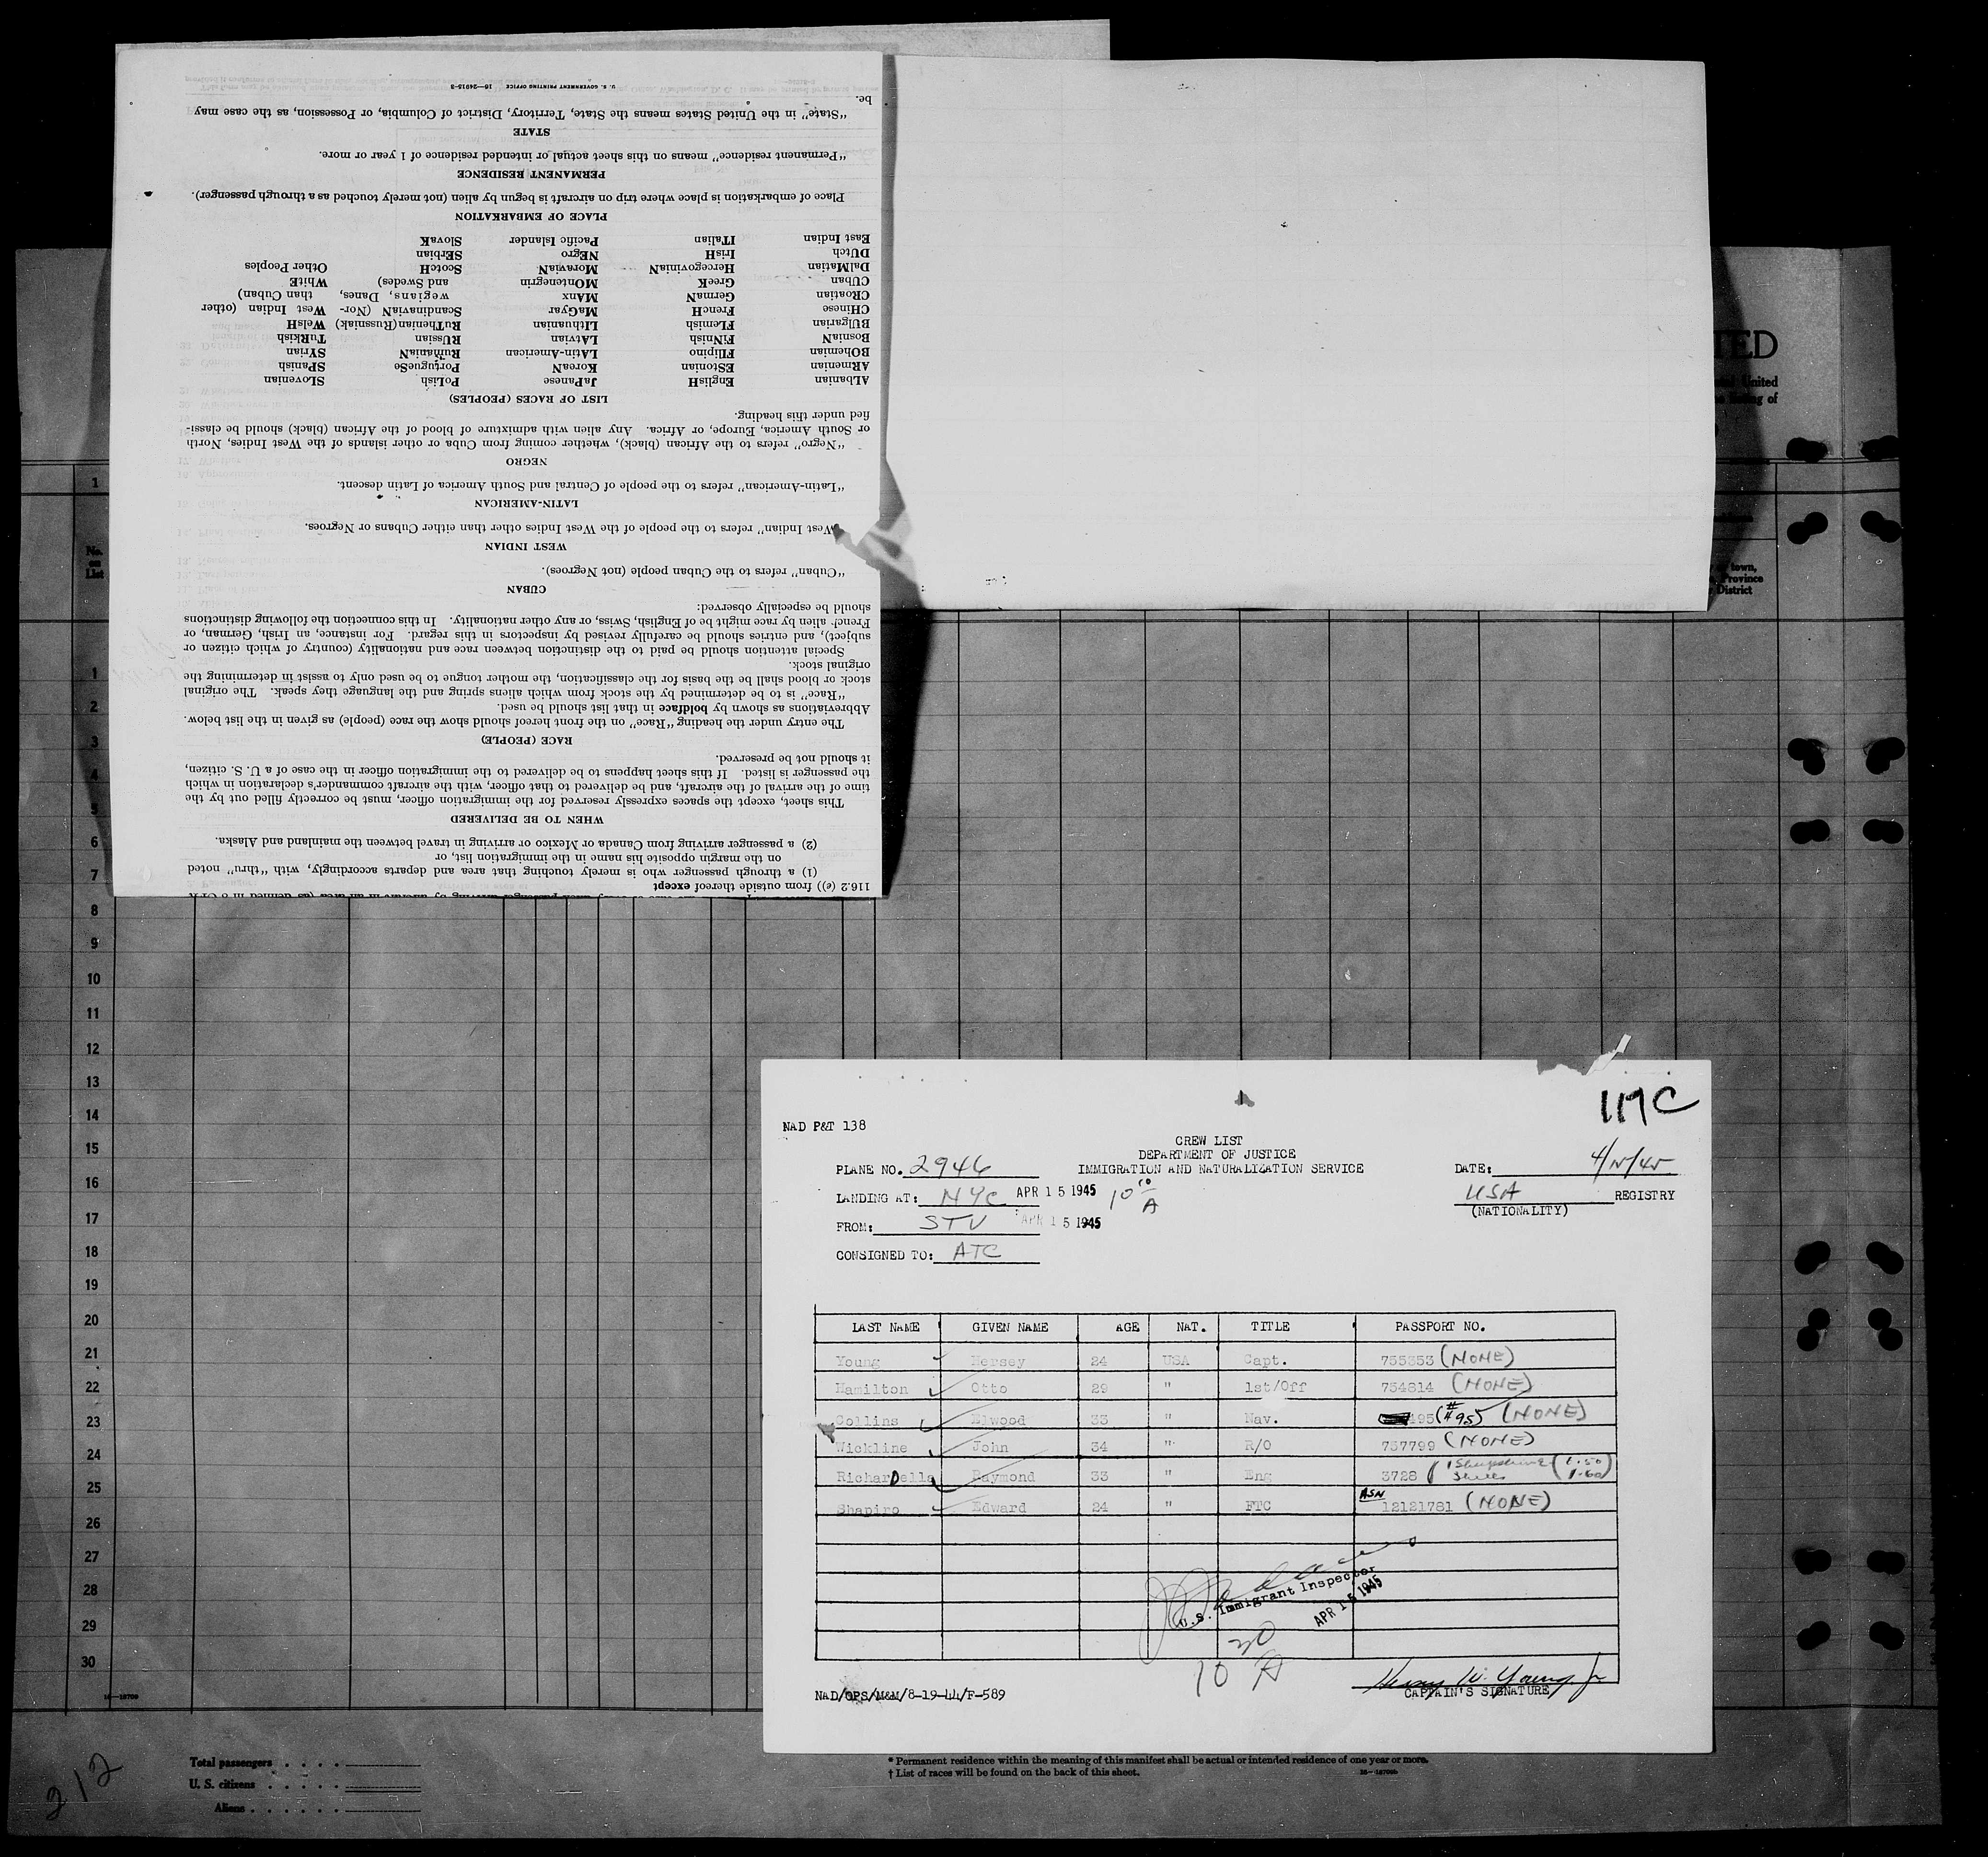 116.2 (e)) from outside thereof except
(1) a through passenger who is merely touching that area and departs accordingly, with "thru" noted
on the margin opposite his name in the immigration list, or
(2) a passenger arriving from Canada or Mexico or arriving in travel between the mainland and Alaska.
WHEN TO BE DELIVERED
This sheet, except the spaces expressly reserved for the immigration officer, must be correctly filled out by the
time of the arrival of the aircraft, and be delivered to that officer, with the aircraft commander's declaration in which
the passenger is listed. If this sheet happens to be delivered to the immigration officer in the case of a U. S. citizen,
it should not be preserved.
RACE (PEOPLE)
The entry under the heading "Race" on the front hereof should show the race (people) as given in the list below.
Abbreviations as shown by boldface in that list should be used.
"Race" is to be determined by the stock from which aliens spring and the language they speak. The original
stock or blood shall be the basis for the classification, the mother tongue to be used only to assist in determining the
original stock.
Special attention should be paid to the distinction between race and nationality (country of which citizen or
subject), and entries should be carefully revised by inspectors in this regard. For instance, an Irish, German, or
French alien by race might be of English, Swiss, or any other nationality. In this connection the following distinctions
should be especially observed:
CUBAN
"Cuban" refers to the Cuban people (not Negroes).
WEST INDIAN
West Indian" refers to the people of the West Indies other than either Cubans or Negroes.
LATIN-AMERICAN
"Latin-American" refers to the people of Central and South America of Latin descent.
NEGRO
"Negro" refers to the African (black), whether coming from Cuba or other islands of the West Indies, North
or South America, Europe, or Africa. Any alien with admixture of blood of the African (black) should be classi-
fied under this heading.
LIST OF RACES (PEOPLES)
ALbanian EnglisH JaPanese PoLish SLovenian
ARmenian EStonian KoreaN PortugueSe SPanish
BOhemian FIlipino LAtin-American RuManiaN SYrian
BosniaN FiNnish LATvian RUssian TuRKish
BUlgarian FLemish LIthuanian RuThenian (Russniak) WelsH
CHinese FrencH MaGyar ScandinaviaN (Nor- West Indian (other
CRoatian GermaN MAnx wegians, Danes, than Cuban)
CUban GreeK MOntenegrin and Swedes) WhitE
DalMatian HercegoviniaN MoraviaN ScotcH Other Peoples
DUtch IrisH NEgro SErbian
East Indian ITalian Pacific Islander SlovaK
PLACE OF EMBARKATION
Place of embarkation is place where trip on aircraft is begun by alien (not merely touched as a through passenger).
PERMANENT RESIDENCE
"Permanent residence" means on this sheet actual or intended residence of 1 year or more.
STATE
"State" in the United States means the State, Territory, District of Columbia, or Possession, as the case may
be.
U. S. GOVERNMENT PRINTING OFFICE 16—24915-3
TED
United
listing of
town,
Province
District
1
No.
on
List
1
2
3
4
5
6
7
8
9
10
11
12
13
14
15
16
17
18
19
20
21
22
23
24
25
26
27
28
29
30
NAD P&T 138
CREW LIST
DEPARTMENT OF JUSTICE
IMMIGRATION AND NATURALIZATION SERVICE
PLANE NO. 2946
DATE: 4/15/45
LANDING AT: NYC APR 15 1945 10 10 A
USA REGISTRY
(NATIONALITY)
FROM: STV APR 15 1945
CONSIGNED TO: ATC
LAST NAME GIVEN NAME AGE NAT. TITLE PASSPORT NO.
Young Hersey 24 USA Capt. 755353 (NONE)
Hamilton Otto 29 " 1st/Off 754814 (NONE)
Collins Elwood 33 " Nav. 495 (#495) (NONE)
Wickline John 34 " R/O 757799 (NONE)
RicharDella Raymond 33 " Eng 3728
Shapiro Edward 24 " FTC ASN 12121781 (NONE)
U.S. Immigrant Inspector
APR 15 1945
10 30 A
CAPTAIN'S SIGNATURE
NAD/OPS/M&M/8-19-44/F-589
Total passengers
U. S. citizens
Aliens
* Permanent residence within the meaning of this manifest shall be actual or intended residence of one year or more.
† List of races will be found on the back of this sheet.
212